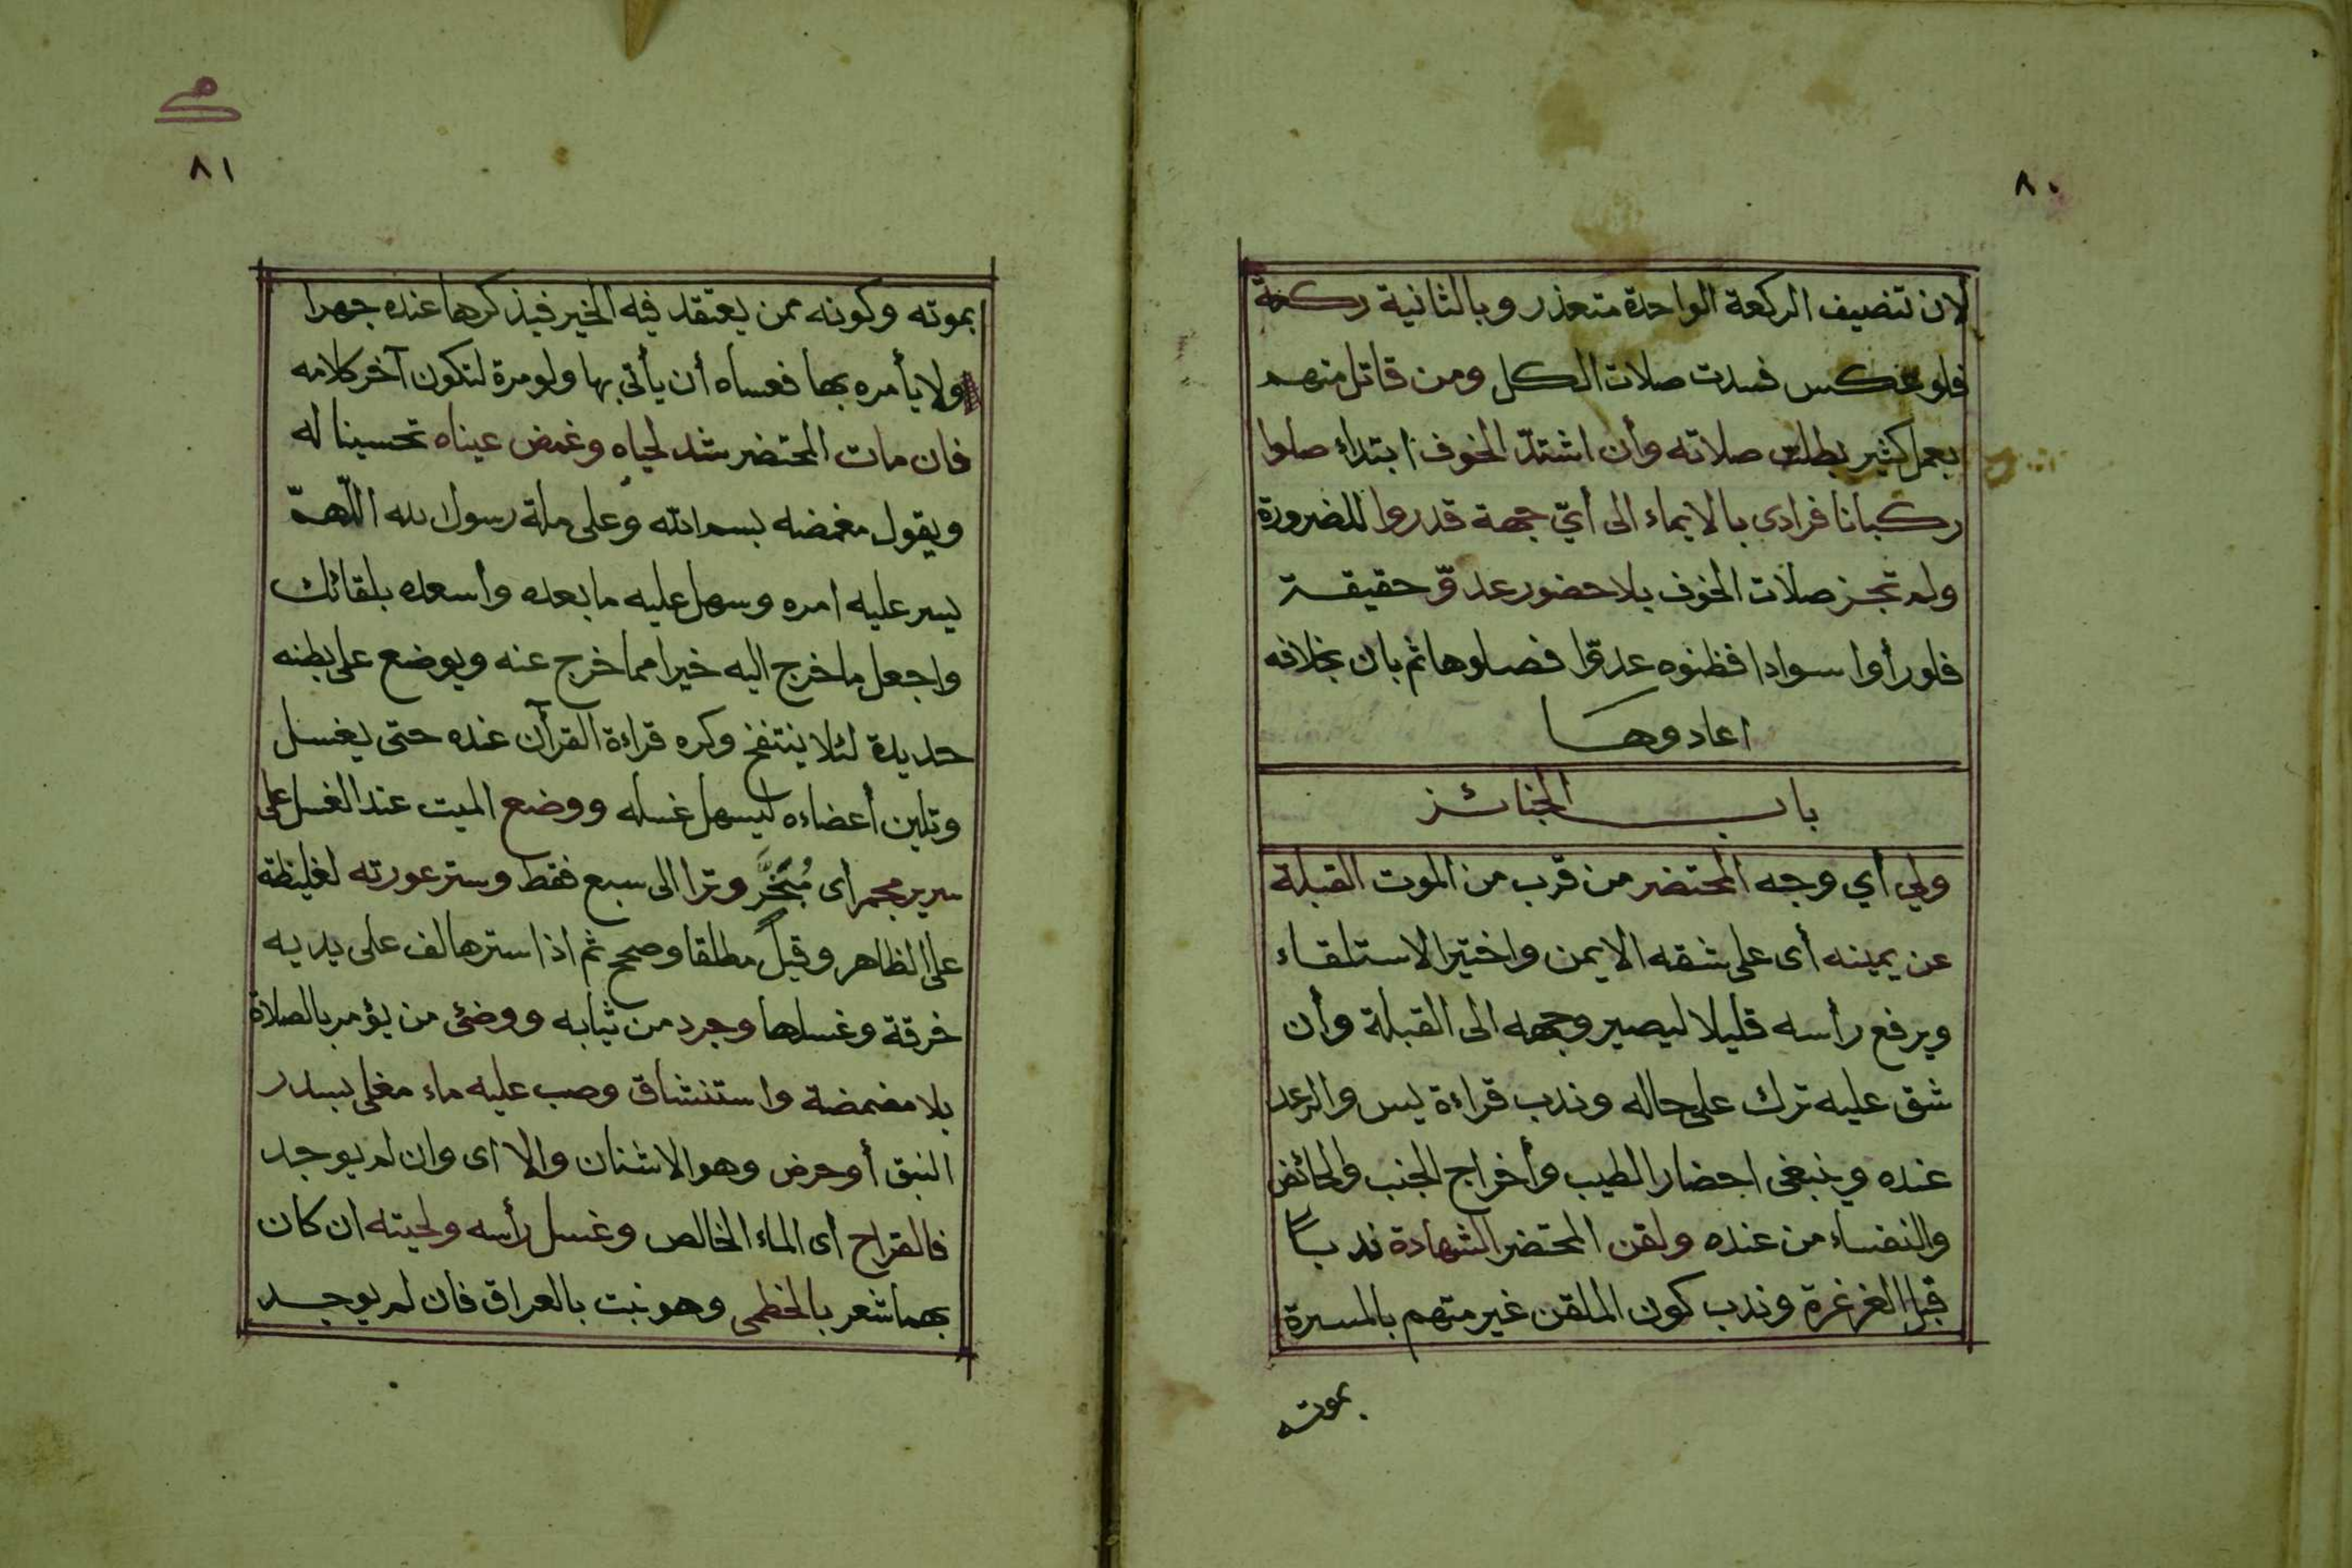 ٨٠
لان تنصيف الركعة الواحدة متعذر وبالثانية ركعة
فلو عكس فسدت صلات الكل ومن قاتل منهم
بعمل كثير بطلت صلاته وأن اشتدّ الخوف ابتداء صلوا
ركبانا فرادى بالايماء الى أيّ جهة قدروا للضرورة
ولم تجز صلات الخوف بلا حضور عدوّ حقيقة
فلو رأوا سوادا فظنوه عدوّا فصلوها ثم بان بخلافه
اعادوها
باب الجنائز
ولي أي وجه المحتضر من قرب من الموت القبلة
عن يمينه أى على شقه الايمن واختير الاستلقاء
ويرفع رأسه قليلا ليصير وجهه الى القبلة وأن
شق عليه ترك على حاله وندب قراءة يس والرعد
عنده وينبغى احضار الطيب وأخراج الجنب والحائض
والنفساء من عنده ولقن المحتضر الشهادة ندباً
قبل الغرغرة وندب كون الملقن غير متهم بالمسرة
بموته
٨١
بموته وكونه ممن يعتقد فيه الخير فيذكرها عنده جهرا
ولا يأمره بها فعساه أن يأتى بها ولو مرة لتكون آخر كلامه
فان مات المحتضر شد لحياه وغمض عيناه تحسينا له
ويقول مغمضه بسم الله وعلى ملة رسول الله اللّهمّ
يسر عليه امره وسهل عليه ما بعده وأسعده بلقائك
واجعل ما خرج اليه خيرا مما خرج عنه ويوضع على بطنه
حديدة لئلا ينتفخ وكره قراءة القرآن عنده حتى يغسل
وتلين أعضاءه ليسهل غسله ووضع الميت عند الغسل على
سرير مجمر أى مُبَخَّر وترا الى سبع فقط وستر عورته لغليظة
على الظاهر وقيل مطلقا وصحح ثم اذا سترها لف على يديه
خرقة وغسلها وجرد من ثيابه ووضئ من يؤمر بالصلاة
بلا مضمضة واستنشاق وصب عليه ماء مغلى بسدر
النبق أو حرض وهو الاشنان والا اى وان لم يوجد
فالقراح أى الماء الخالص وغسل رأسه ولحيته ان كان
بهما شعر بالخطمى وهو نبت بالعراق فان لم يوجد